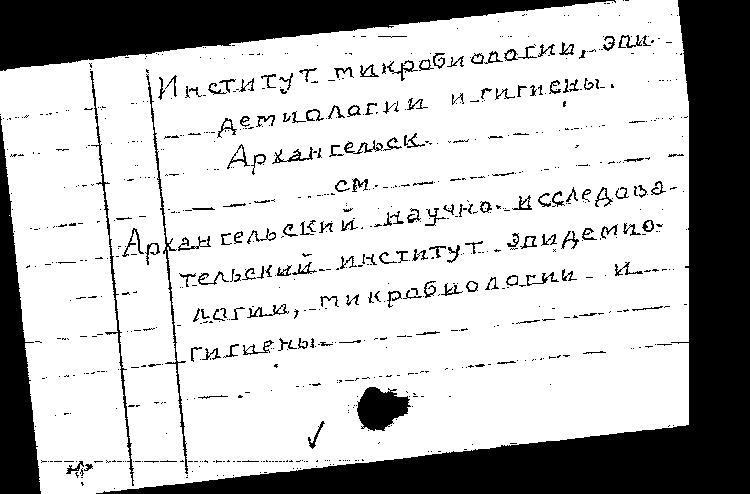 Институт микробиологии, эпи-
демиологии и гигиены.
Архангельск.
см.
Архангельский научно-исследова-
тельский институт эпидемио-
логии, микробиологии и
гигиены.